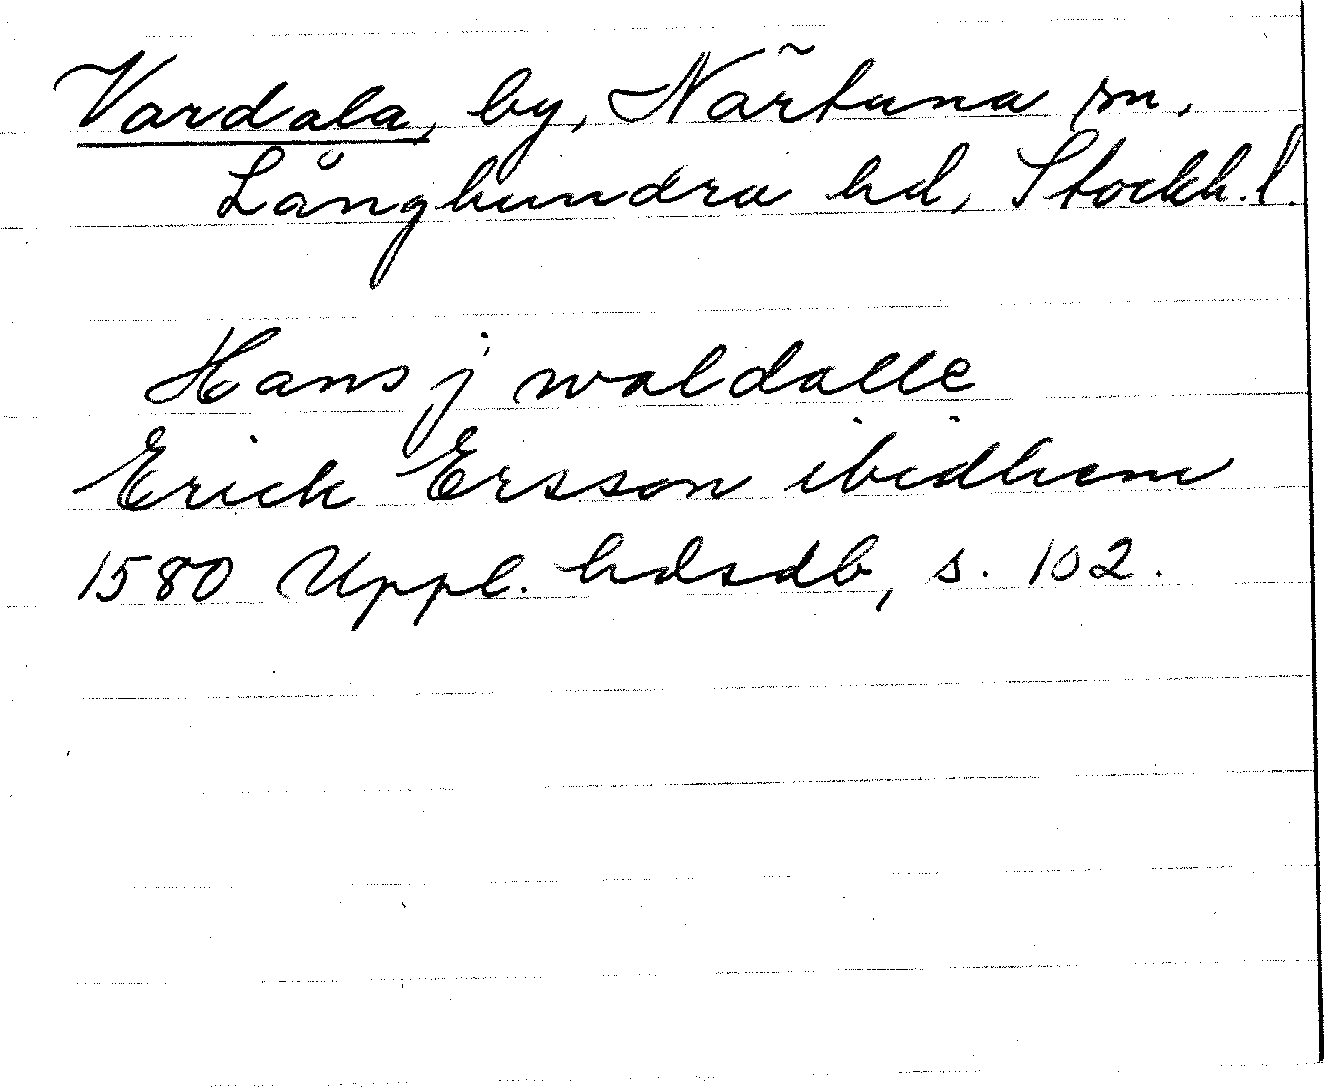 Vardala, by, Närtuna sn,
Långhundra hd, Stockh. l.
Hans j waldalle
Erick Ersson ibidhem
1580 Uppl. hdsdb, s. 102.